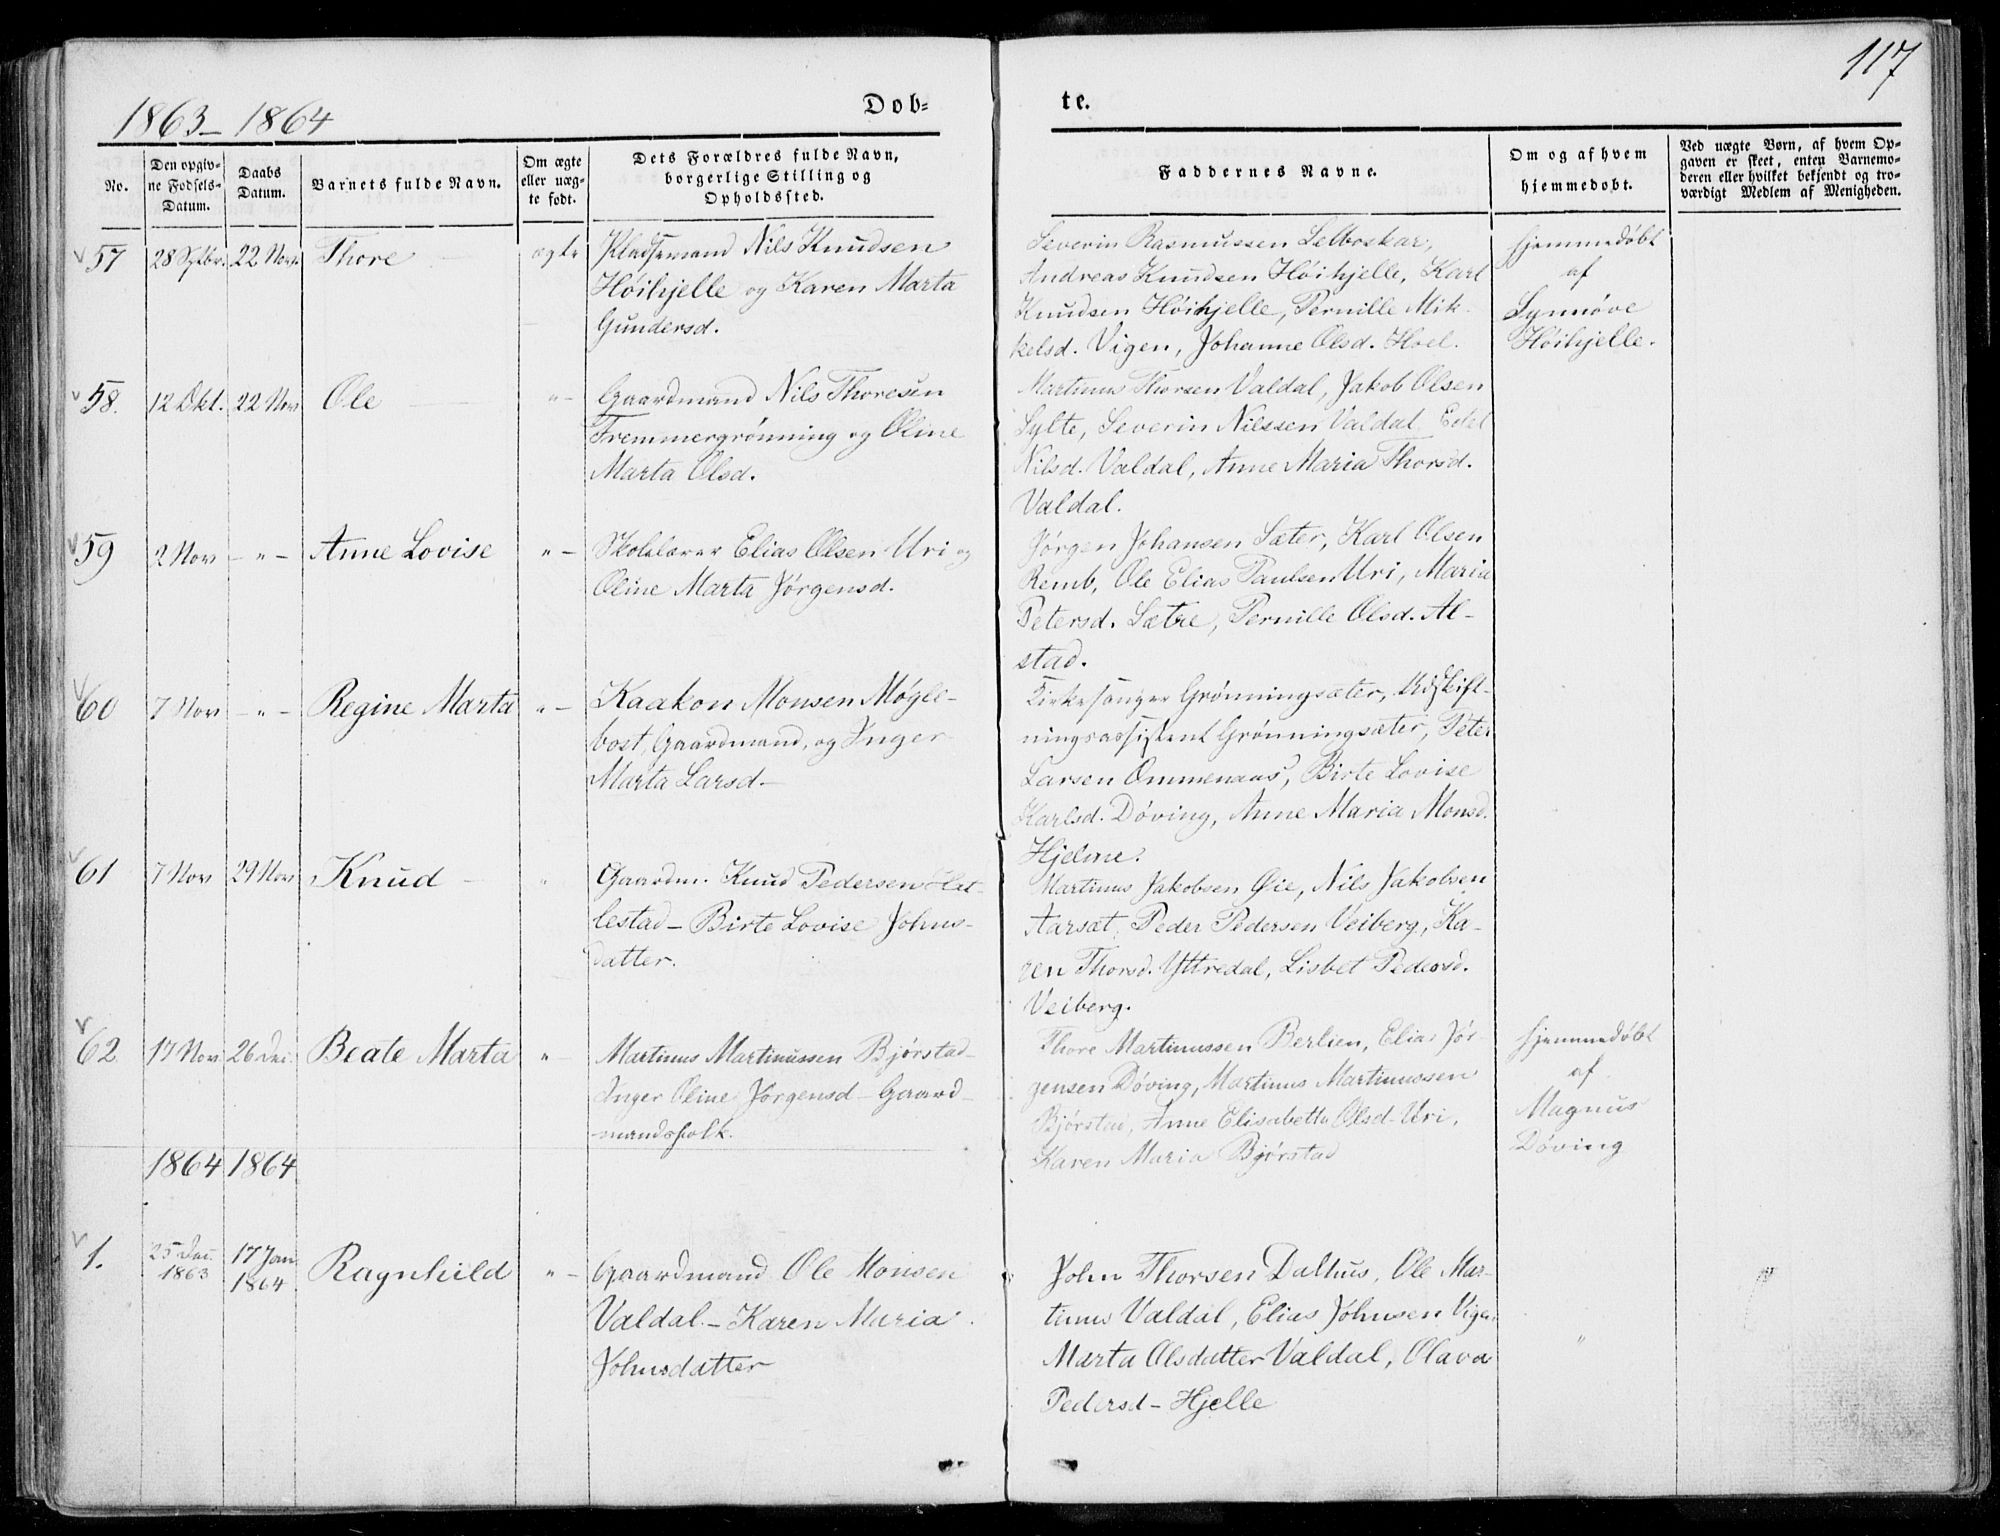 117
1863-1864
Døb=
te.
No.
Den opgiv-
ne Fødsels-
Datum.
Daabs
Datum.
Barnets fulde Navn.
Om ægte
eller uæg-
te født.
Dets Forældres fulde Navn,
borgerlige Stilling og
Opholdssted.
Faddernes Navne.
Om og af hvem
hjemmedøbt.
Ved uægte Børn, af hvem Op-
gaven er skeet, enten Barnemo-
deren eller hvilket bekjendt og tro-
værdigt Medlem af Menigheden.
57 28 Sptbr. 22 Nov. Thore ægte
Pladsemand Nils Knudsen
Høihjelle og Karen Marta
Gundersd.
Severin Rasmussen Selboskar,
Andreas Knudsen Høihjelle, Karl
Knudsen Høihjelle, Pernille Mik-
kelsd. Vigen, Johanne Olsd. Hoel.
hjemmedøbt
af
Synnøve
Høihjelle.
58. 12 Okt. 22 Nov Ole "-
Gaardmand Nils Thoresen
Fremmergrønning og Oline
Marta Olsd.
Martinus Thorsen Valdal, Jakob Olsen
Sylte, Severin Nilssen Valdal, Edel
Nilsd. Valdal, Anne Maria Thorsd.
Valdal.
59 2 Nov -"- Anne Lovise "-
Skolelærer Elias Olsen Uri og
Oline Marta Jørgensd.
Jørgen Johansen Sæter, Karl Olsen
Remb, Ole Elias Paulsen Uri, Maria
Petersd. Sætre, Pernille Olsd. Al-
stad.
60 7 Nov -"- Regine Marta "-
Haakon Monsen Møgle-
bost, Gaardmand, og Inger
Marta Larsd-
Kirkesanger Grønningsæter, Udskift-
ningsassistent Grønningsæter, Peter
Larsen Ommenaas, Birte Lovise
Karlsd. Døving, Anne Maria Monsd.
Hjelme.
61 7 Nov 29 Nov Knud "
Gaardm. Knud Pedersen Hal-
lestad- Birte Lovise Johns-
datter.
Martinus Jakobsen Øie, Nils Jakobsen
Aarsæt, Peder Pedersen Veiberg, Ka-
ren Thorsd. Yttredal, Lisbet Pedersd.
Veiberg.
62 17 Nov 26 Dec. Beate Marta "-
Martinus Martinussen Bjørstad-
Inger Oline Jørgensd- Gaard-
mandsfolk.
Thore Martinussen Berlien, Elias Jør-
gensen Døving, Martinus Martinussen
Bjørstad, Anne Elisabetta Olsd-Uri,
Karen Maria Bjørstad
hjemmedøbt
af
Magnus
Døving
1864 1864
1. 25 Dec. 1863 17 Jan 1864 Ragnhild "-
Gaardmand Ole Monsen
Valdal.- Karen Maria
Johnsdatter
John Thorsen Dalhus, Ole Mar-
tinus Valdal, Elias Johnsen Vigen,
Marta Olsdatter Valdal, Olava
Pedersd- Hjelle
"